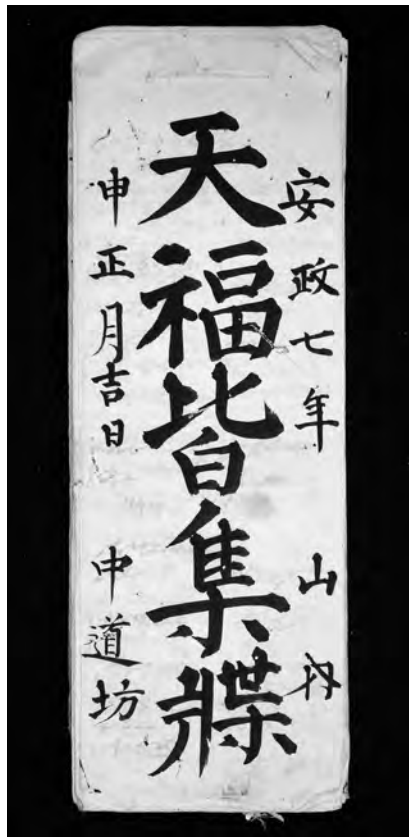 安政七年 山
天福皆集牒
申正月吉日 中道坊